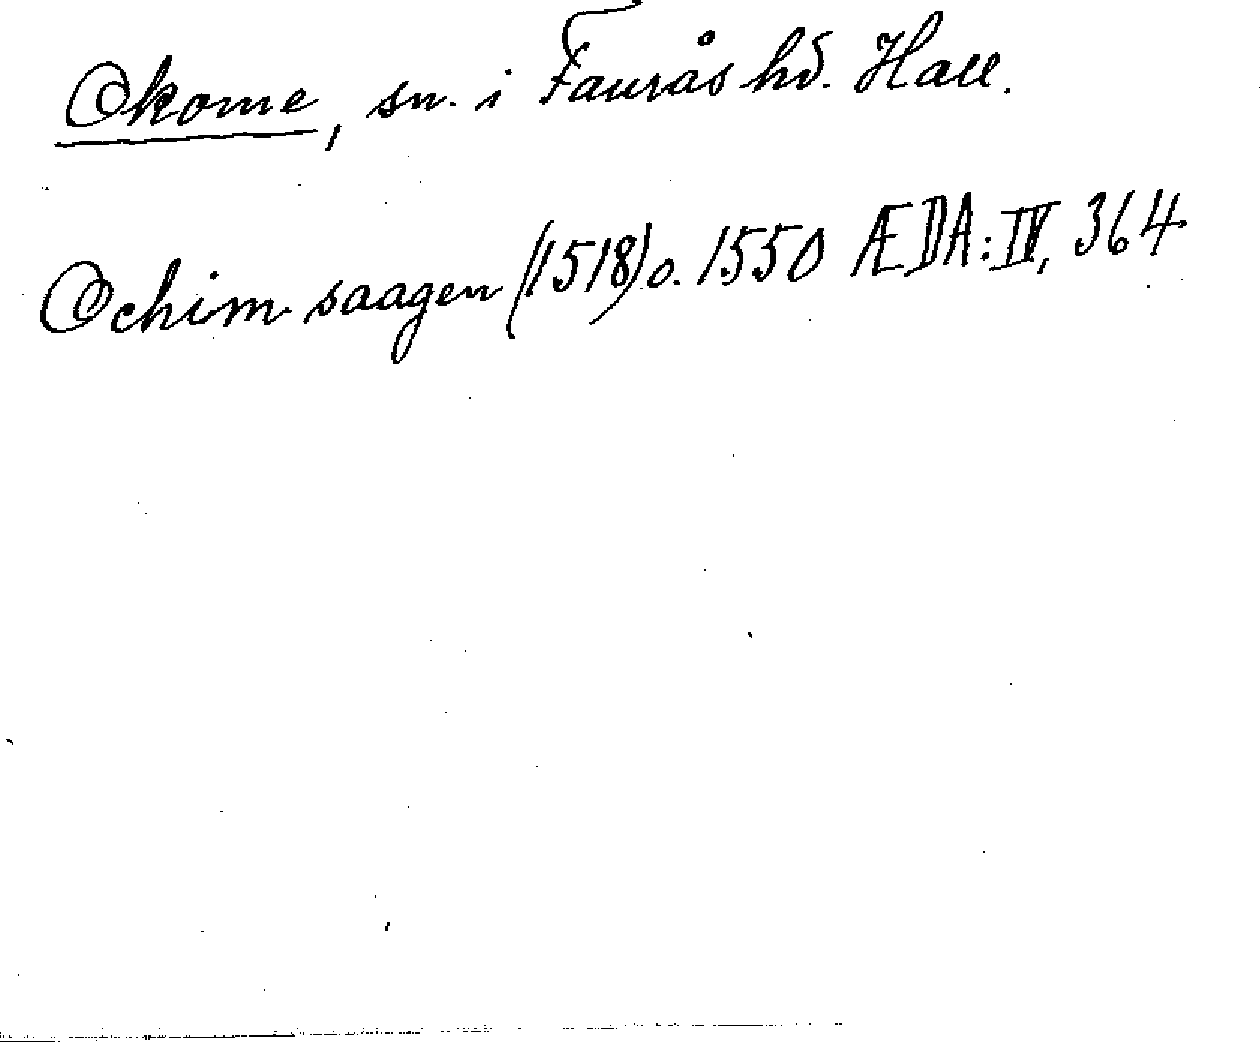 Okome, sn. i Faurås hd. Hall.
Ochim saagen (1518) o. 1550 ÆDA: IV, 364